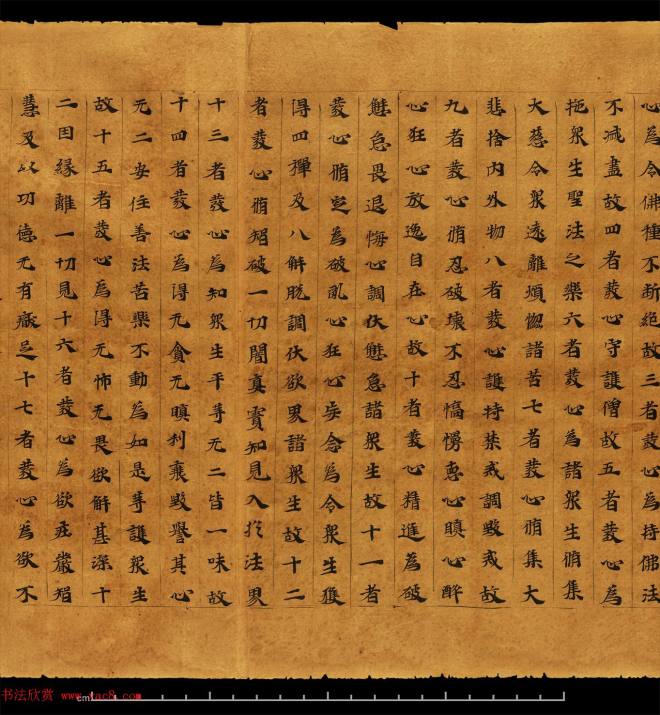 心為令佛種不斷絕故三者發心為持佛法
不滅盡故四者發心守護僧故五者發心為
拖眾生聖法之樂六者發心為諸眾生脩集
大慈令眾遠離煩惱諸苦七者發心脩集大
悲捨內外物八者發心護持禁戒調毀戒故
九者發心脩忍破壞不忍憍慢恚心瞋心醉
心狂心放逸自在心故十者發心精進為破
懈怠畏退悔心調伏懈怠諸眾生故十一者
發心脩定為破亂心狂心失念為令眾生獲
得四禪及八解脫調伏欲界諸眾生故十二
者發心脩智破一切闇真實知見入於法界
十三者發心為知眾生平等无二皆一味故
十四者發心為得无貪无瞋利衰毀譽其心
无二安住善法苦樂不動為如是等護眾生
故十五者發心為得无怖无畏欲解甚深十
二因緣離一切見十六者發心為欲莊嚴智
慧及以功德无有厭足十七者發心為欲不
书法欣赏 www.tac8.com
cm